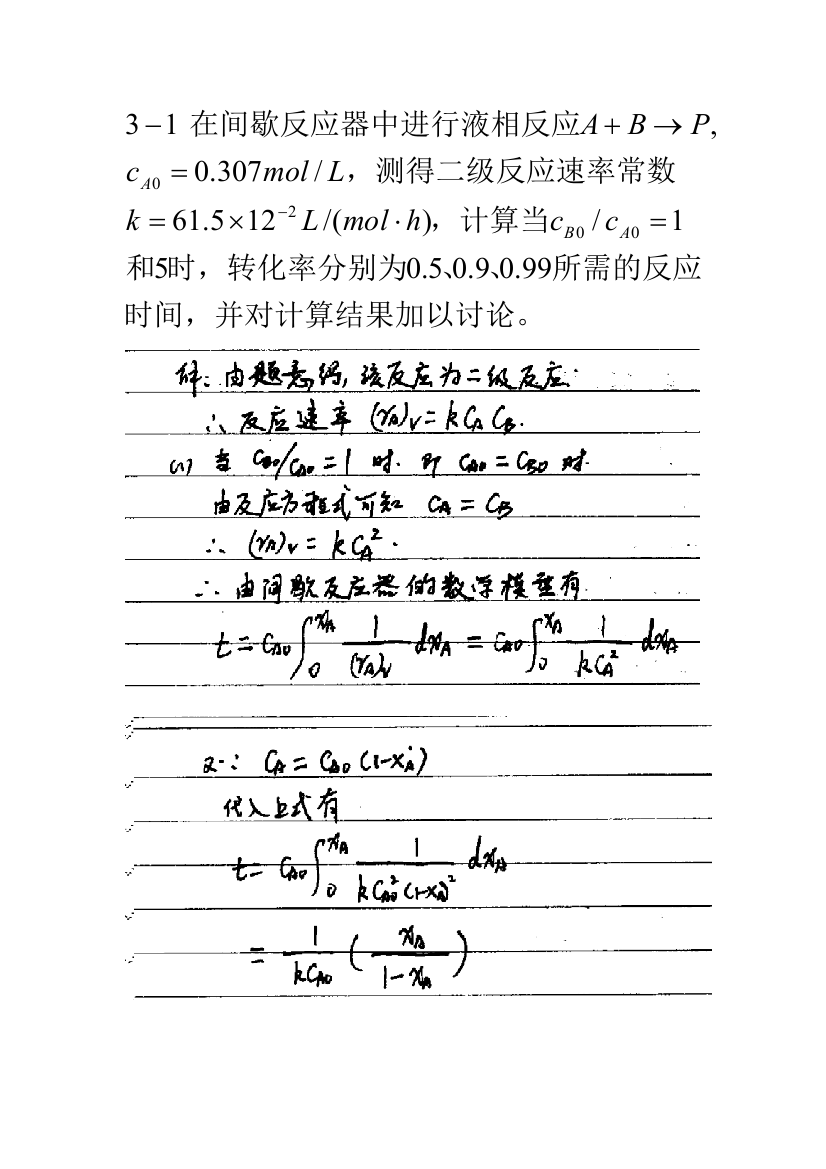 3-1 在间歇反应器中进行液相反应A + B → P,
c_{A0} = 0.307mol / L，测得二级反应速率常数
k = 61.5×12^{-2} L /(mol · h)，计算当c_{B0} / c_{A0} = 1
和5时，转化率分别为0.5、0.9、0.99所需的反应
时间，并对计算结果加以讨论。
解：由题意得，该反应为二级反应.
∴ 反应速率 (r_A)_V = k C_A C_B.
(1) 当 C_{B0}/C_{A0} = 1 时. 即 C_{A0} = C_{B0} 时.
由反应方程式可知 C_A = C_B
∴ (r_A)_V = k C_A^2.
∴ 由间歇反应器的数学模型有
t = C_{A0} ∫_0^{x_A} \frac{1}{(r_A)_V} dx_A = C_{A0} ∫_0^{x_A} \frac{1}{k C_A^2} dx_A
又∵ C_A = C_{A0} (1-x_A)
代入上式有
t = C_{A0} ∫_0^{x_A} \frac{1}{k C_{A0}^2 (1-x_A)^2} dx_A
= \frac{1}{k C_{A0}} ( \frac{x_A}{1-x_A} )